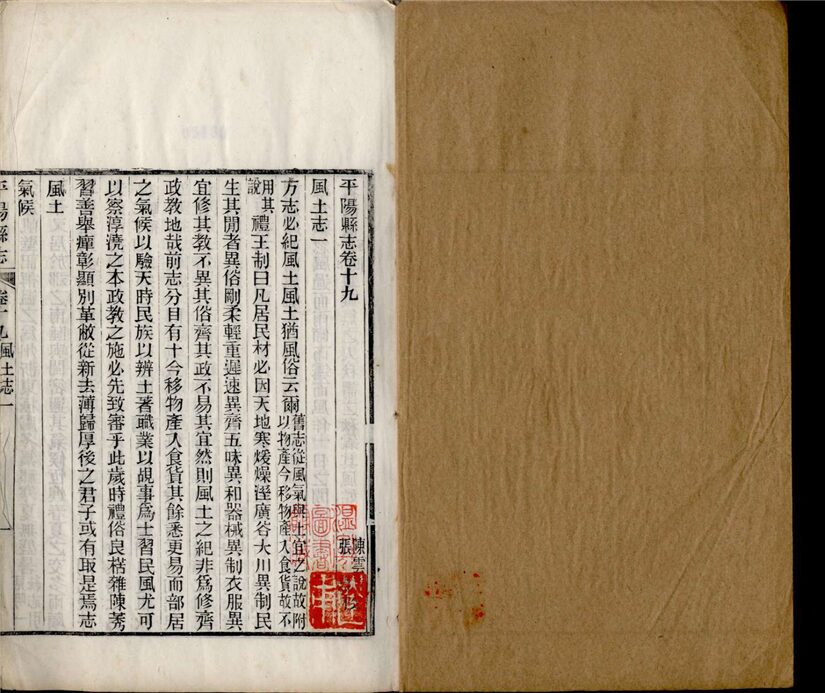 平陽縣志卷十九
風土志一
方志必紀風土風土猶風俗云爾舊志從風氣與土宜之說故附以物産今移物産入食貨故不
用其說禮王制曰凡居民材必因天地寒煖燥溼廣谷大川異制民
生其閒者異俗剛柔輕重遲速異齊五味異和器械異制衣服異
宜修其敎不異其俗齊其政不易其宜然則風土之紀非爲修齊
政敎地哉前志分目有十今移物産入食貨其餘悉更易而部居
之氣候以驗天時民族以辨土著職業以覘事爲士習民風尤可
以察淳澆之本政敎之施必先致審乎此歲時禮俗良楛雜陳莠
習善舉癉彰顯別革敝從新去薄歸厚後之君子或有取是焉志
風土
氣候
平陽縣志
卷十九風土志一
陳雲
張
圖書